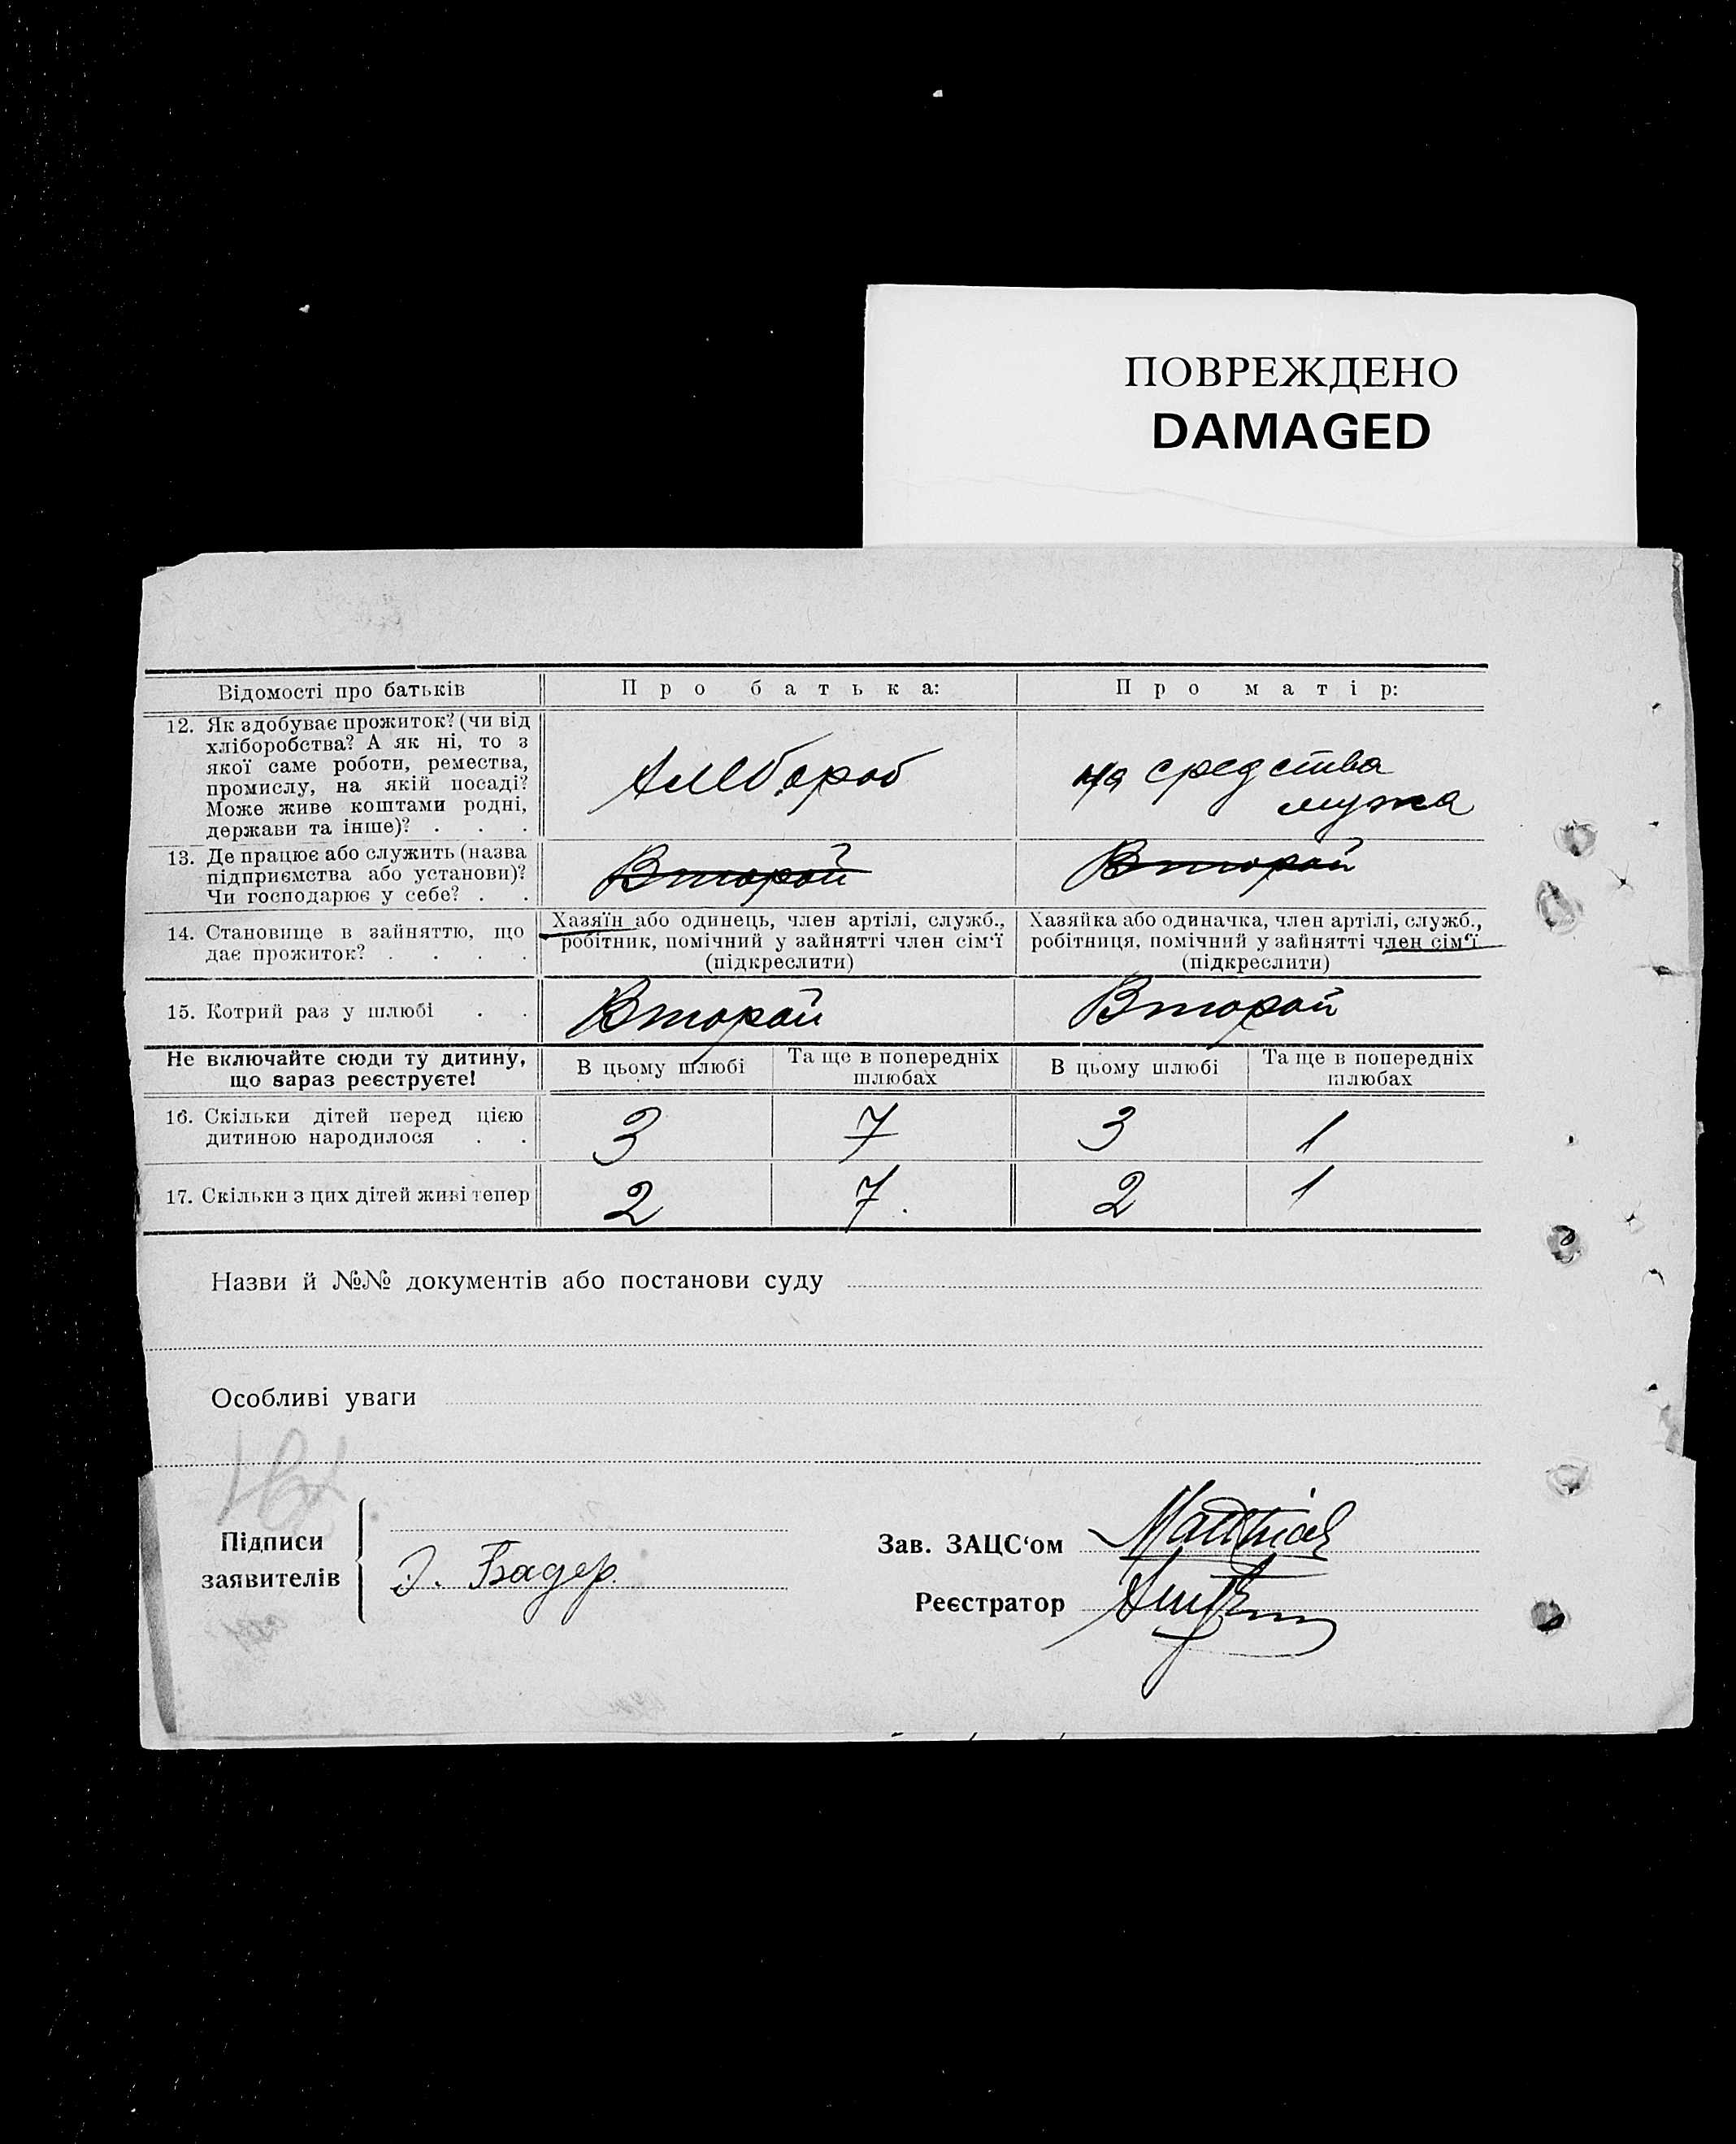 ПОВРЕЖДЕНО
DAMAGED
Відомості про батьків
Про батька:
Про матір:
12. Як здобуває прожиток? (чи від
хліборобства? А як ні, то з
якої саме роботи, ремества,
промислу, на якій посаді?
Може живе коштами родні,
держави та інше)? . . .
хлебороб
на средства
мужа
13. Де працює або служить (назва
підприємства або установи)?
Чи господарює у себе? . .
Второй
Второй
14. Становище в зайняттю, що
дає прожиток? . . . .
Хазяїн або одинець, член артілі, служб.,
робітник, помічний у зайнятті член сім'ї
(підкреслити)
Хазяйка або одиначка, член артілі, служб.,
робітниця, помічний у зайнятті член сім'ї
(підкреслити)
15. Котрий раз у шлюбі . .
Второй
Второй
Не включайте сюди ту дитину,
що зараз реєструєте!
В цьому шлюбі
Та ще в попередніх
шлюбах
В цьому шлюбі
Та ще в попередніх
шлюбах
16. Скільки дітей перед цією
дитиною народилося . .
3
7
3
1
17. Скільки з цих дітей живі тепер
2
7.
2
1
Назви й №№ документів або постанови суду
Особливі уваги
Підписи
заявителів
Э. Бадер.
Зав. ЗАЦС'ом
Matthias
Реєстратор